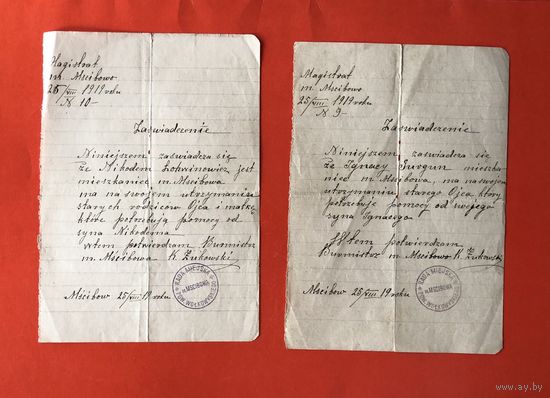 Magistrat
m. Mścibowo
25/VIII 1919 roku
N 10-
Zaświadczenie
Niniejszem zaświadcza się
że Nikodem jest
mieszkaniec m. Mścibowa
ma na swojem utrzymaniu
starych rodziców Ojca i matkę
które potrzebują pomocy od
syna Nikodema
potwierdzam Burmistrz
m. Mścibowa K. Żukowski
Mścibow 25/VIII 19 roku
RADA MIEJSKA
m. MŚCIBOWA
POW. WOŁKOWYSKIEGO
Magistrat
m. Mścibowo
25/VIII 1919 roku
N 9-
Zaświadczenie
Niniejszem zaświadcza się
że Ignacy mieszka-
niec m. Mścibowa, ma na swojem
utrzymaniu starego Ojca który
potrzebuje pomocy od swojego
syna Ignacego
potwierdzam
Burmistrz m. Mścibowo K. Żukowski
Mścibow 25/VIII 19 roku
RADA MIEJSKA
m. MŚCIBOWA
POW. WOŁKOWYSKIEGO
www.ay.by